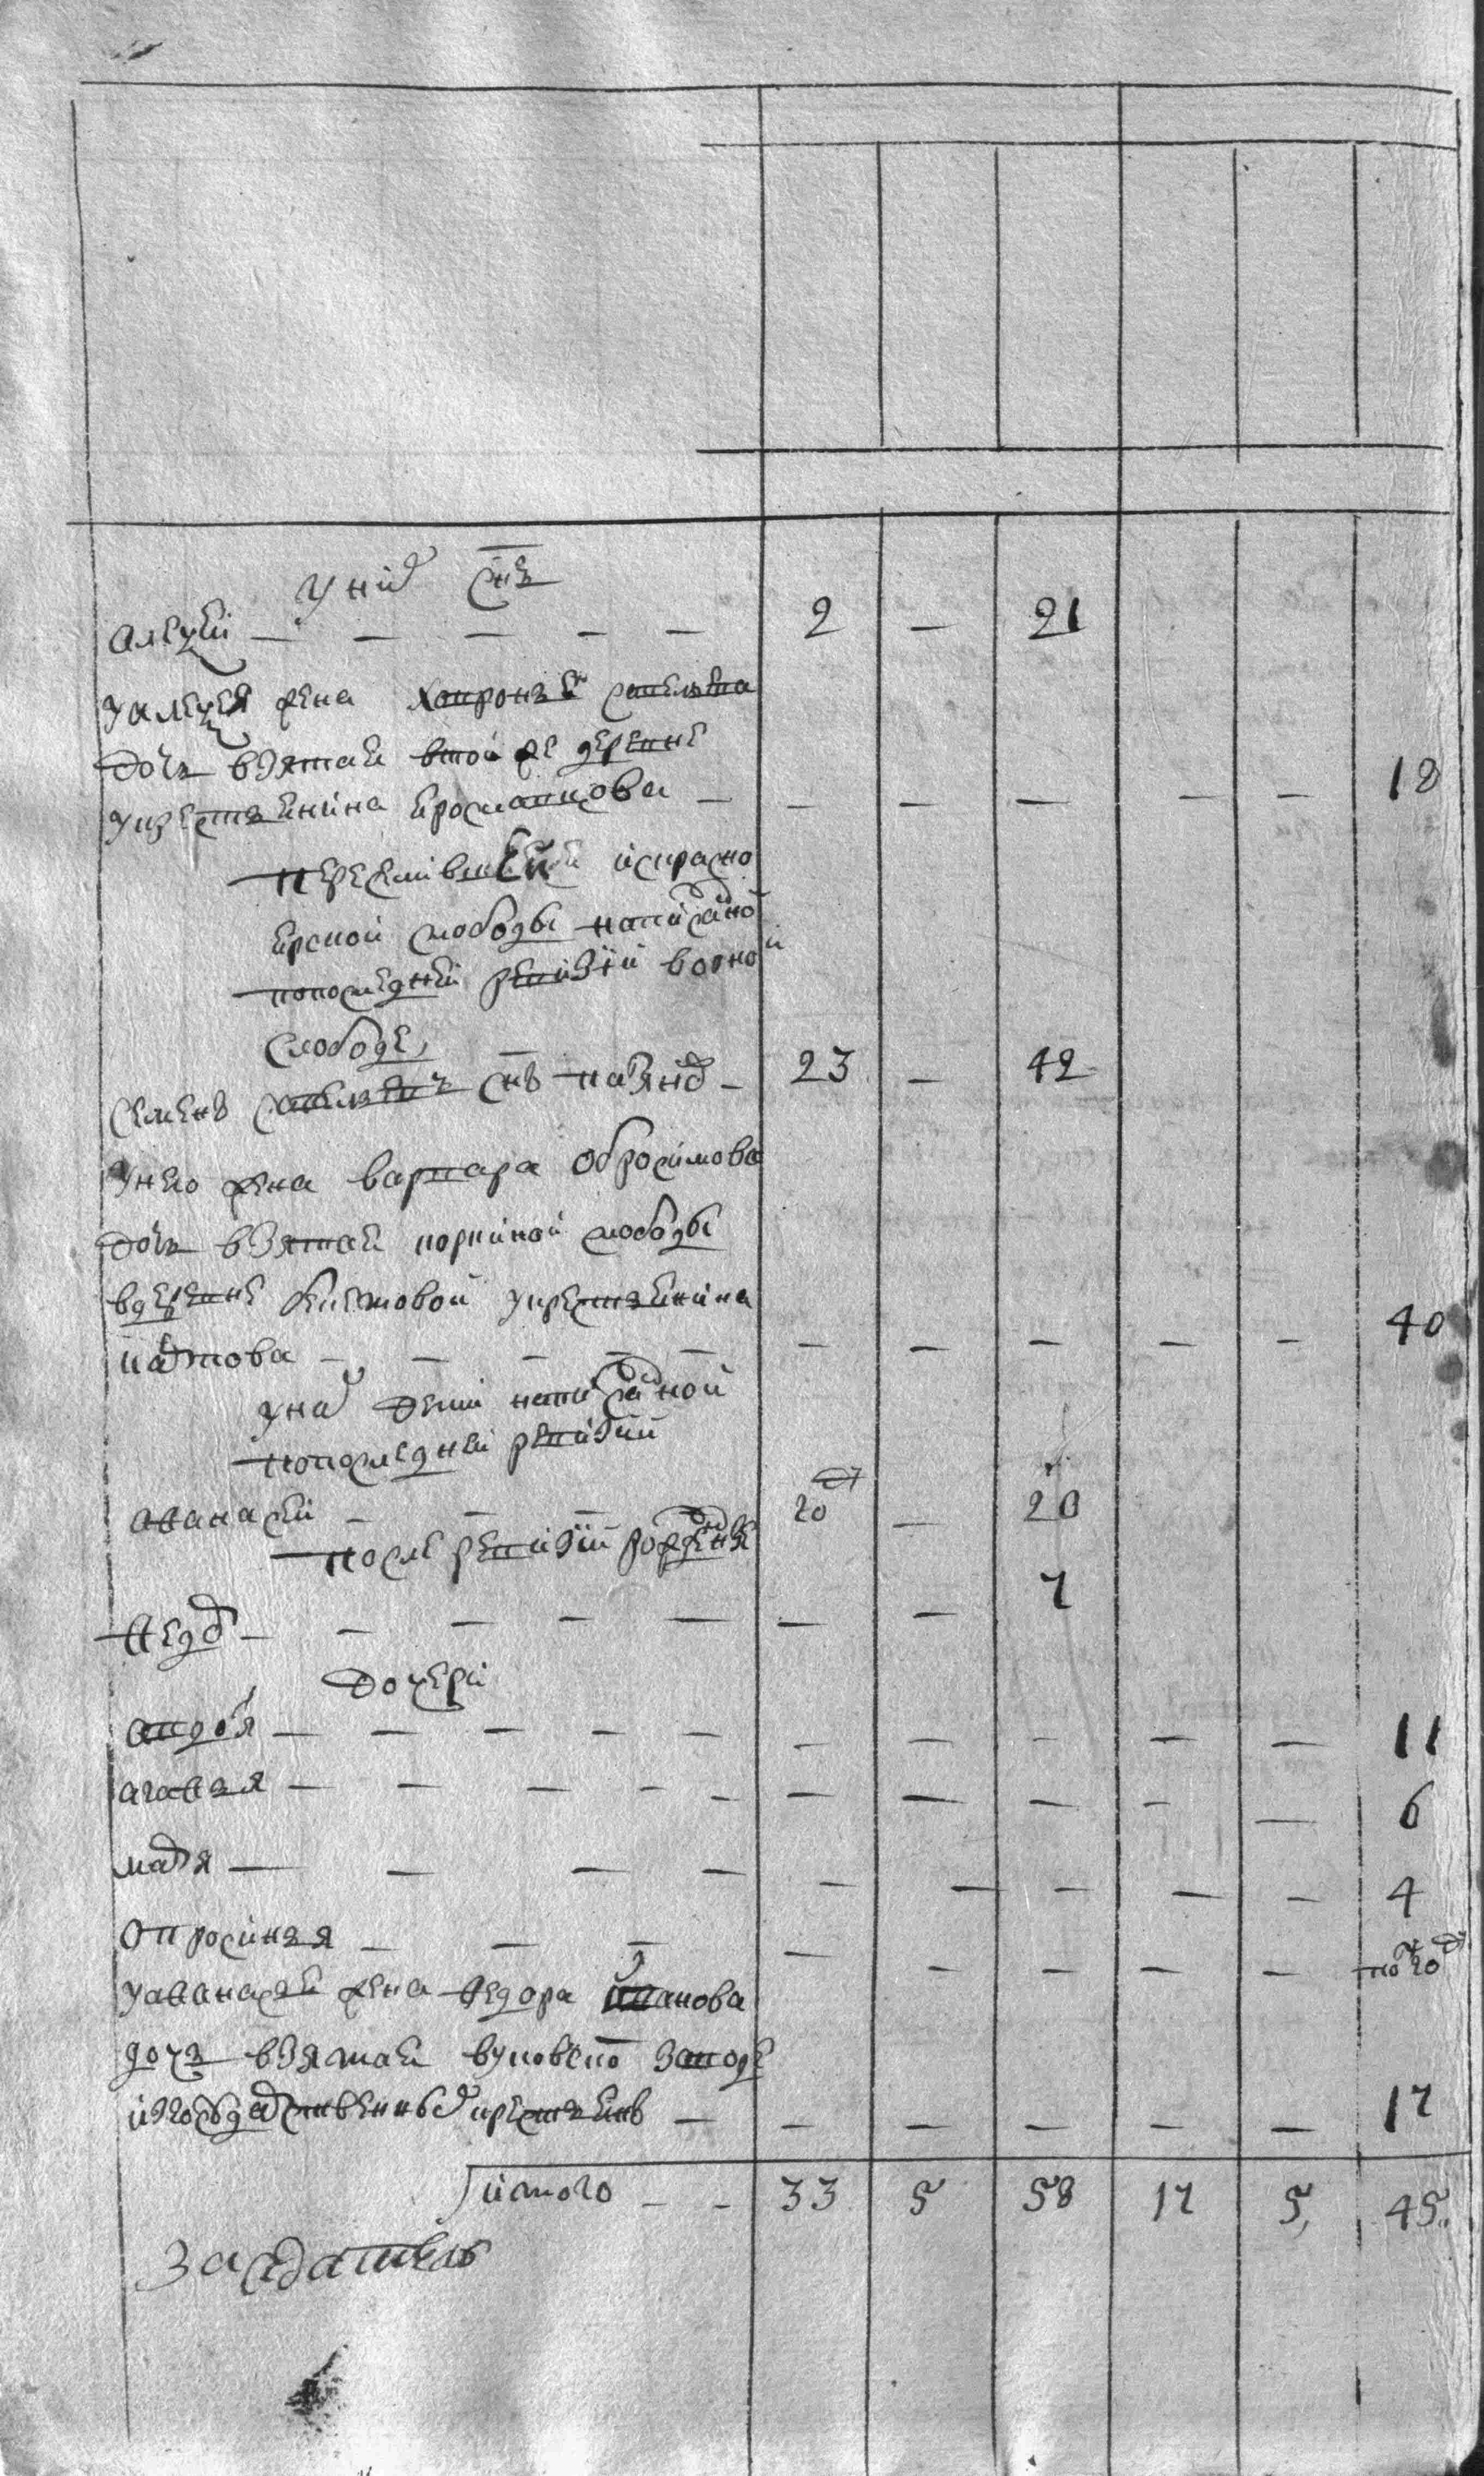 у них снъ
алеѯеи — — — — — 2 — 21
у алеѯея жена Хавронья савельева
дочь взятая в той же деревне
у крестьянина ермакова — — — — — — 18
переселившейся ис красно
ерской слободы написанной
по последней ревизии в оной
слободе
семенъ савельевъ снъ кавзнд — 23 — 42
у него жена варвара обросимова
дочь взятая коркиной слободы
в деревне бытовой у крестьянина
— — — — — — — — — — 40
у них дети написанной
по последней ревизии
аѳанасеи — — — 20 — 28
после ревизии рожденые
ѳедор — — — — — — — 7
дочери
авдотья — — — — — — — — — — 11
агаѳья — — — — — — — — — — 6
марья — — — — — — — — — 4
опросинья — — — — — — — — полго
у аѳанасья жена ѳедора иванова
дочь взятая в уковском заводе
из государственных крестьянъ — — — — — — 17
итого — — 33 5 58 17 5 45
заседатель